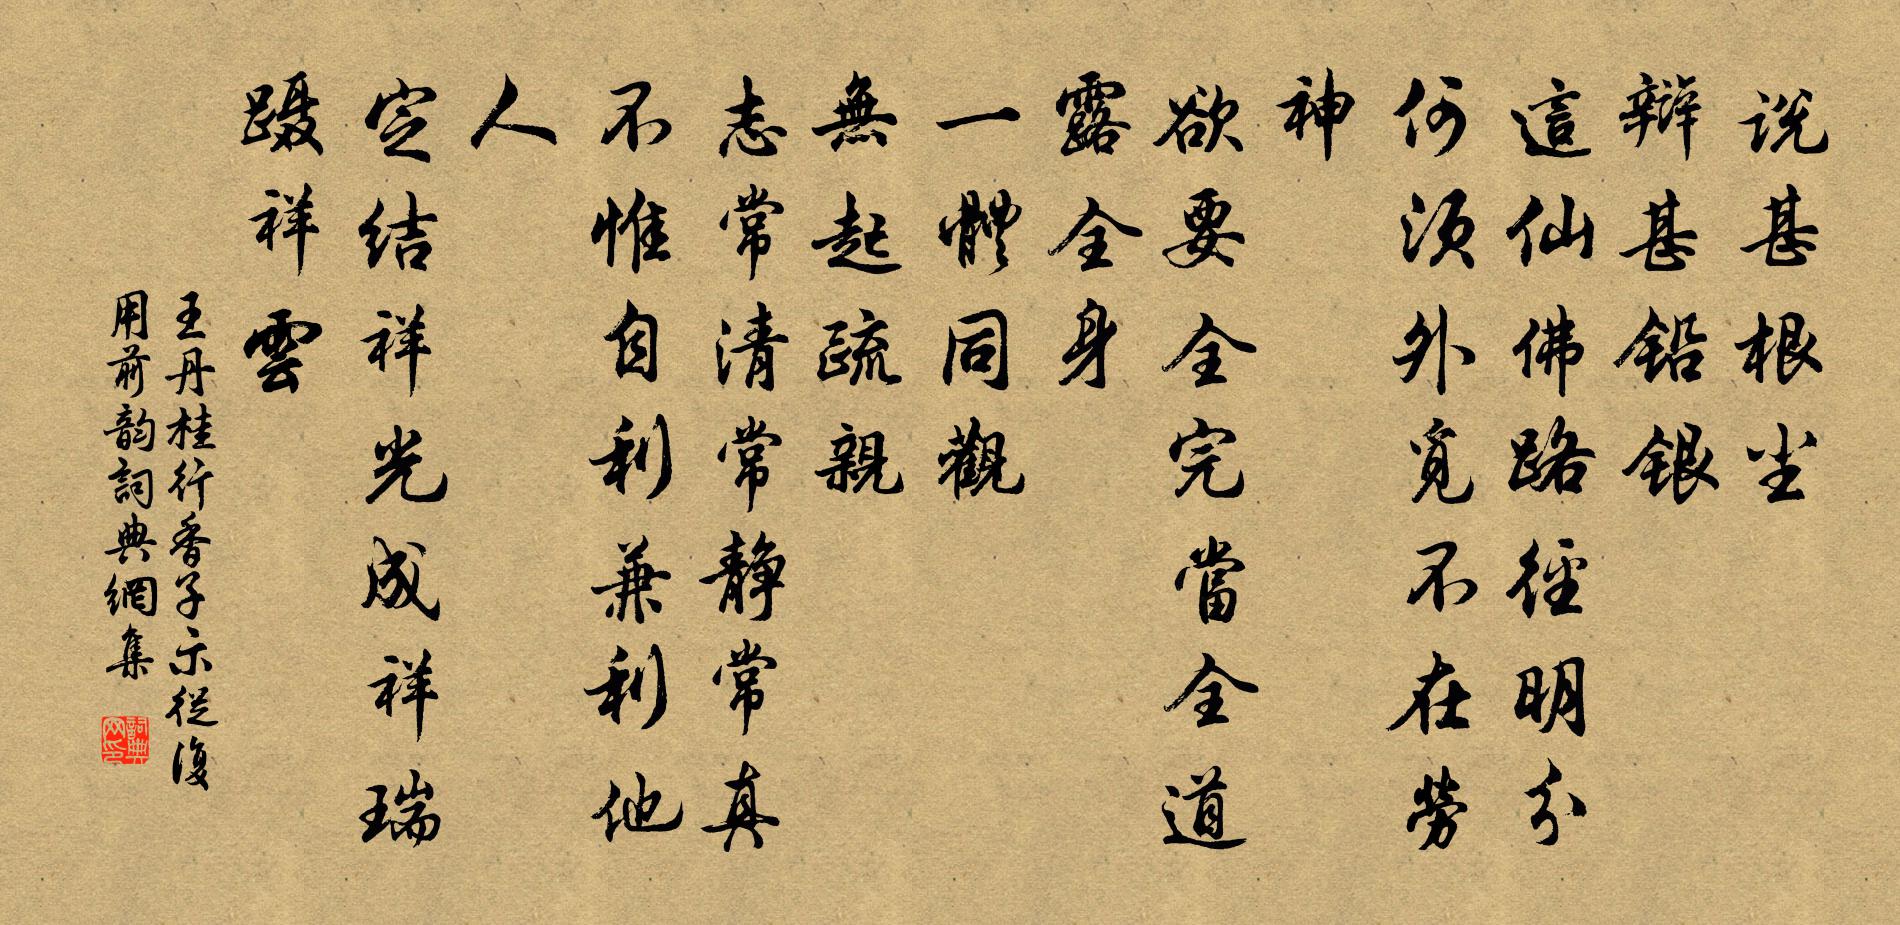 说甚根尘
辩甚鉛銀
這仙佛路径明分
何须外覓不在勞
神
欲要全完當全道
露全身
一體同觀
無起疏親
志常清常静常真
不惟自利兼利他
人
定结祥光成祥瑞
蹑祥雲
王丹桂行香子示從復
用前韵詞典網集
詞典网印